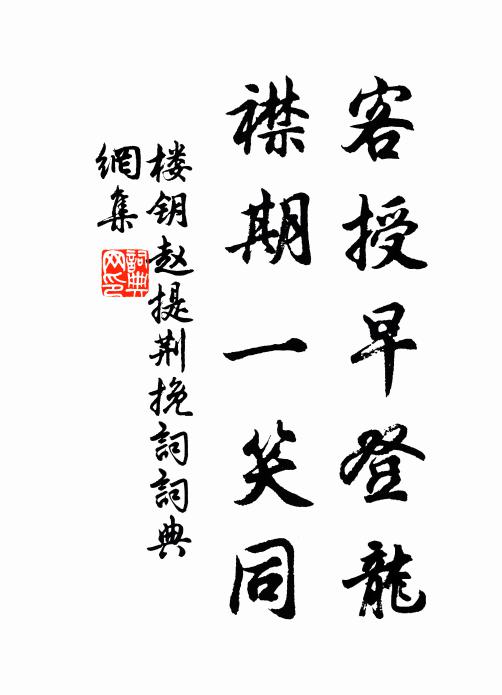 客授早登龍
襟期一笑同
楼钥赵提荆挽詞詞典
網集
詞典
网印